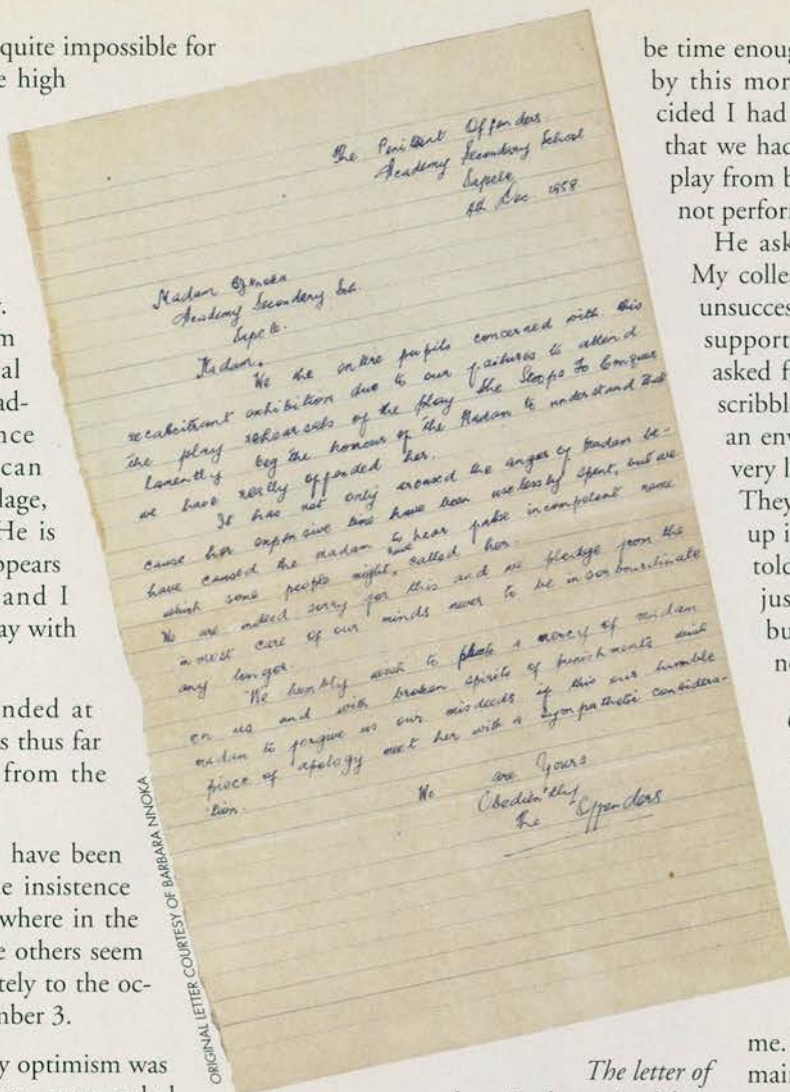 quite impossible for
e high
y.
m
al
ad-
nce
can
lage,
He is
ppears
and I
ay with
nded at
s thus far
from the
have been
e insistence
where in the
e others seem
tely to the oc-
mber 3.
y optimism was
ORIGINAL LETTER COURTESY OF BARBARA NNOKA
The Penitent Offenders
Academy Secondary School
Sapele
4th Dec 1958
Madam B Nnoka
Academy Secondary Sch.
Sapele.
Madam,
We the entire pupils concerned with this
recalcitrant exhibition due to our failures to attend
the play rehearsals of the play She Stoops To Conquer
lamently beg the honour of the Madam to understand that
we have really offended her.
It has not only aroused the anger of madam be-
cause her expensive time have been uselessly spent, but we
have caused the madam to hear false incompetent name
which some people might have called her.
We are indeed sorry for this and we pledge from the
in most care of our minds never to be insorbourdinate
any longer.
We humbly wish to a mercy of madam
on us and with broken spirits of punishments
madam to forgive us our misdeeds if this our humble
piece of apology meet her with a sympathetic considera-
tion.
We are Yours
Obediently
The Offenders
be time enoug
by this mor
cided I had
that we had
play from b
not perform
He ask
My colle
unsucces
support
asked f
scribble
an env
very l
They
up i
told
jus
bu
n
me.
The letter of
main